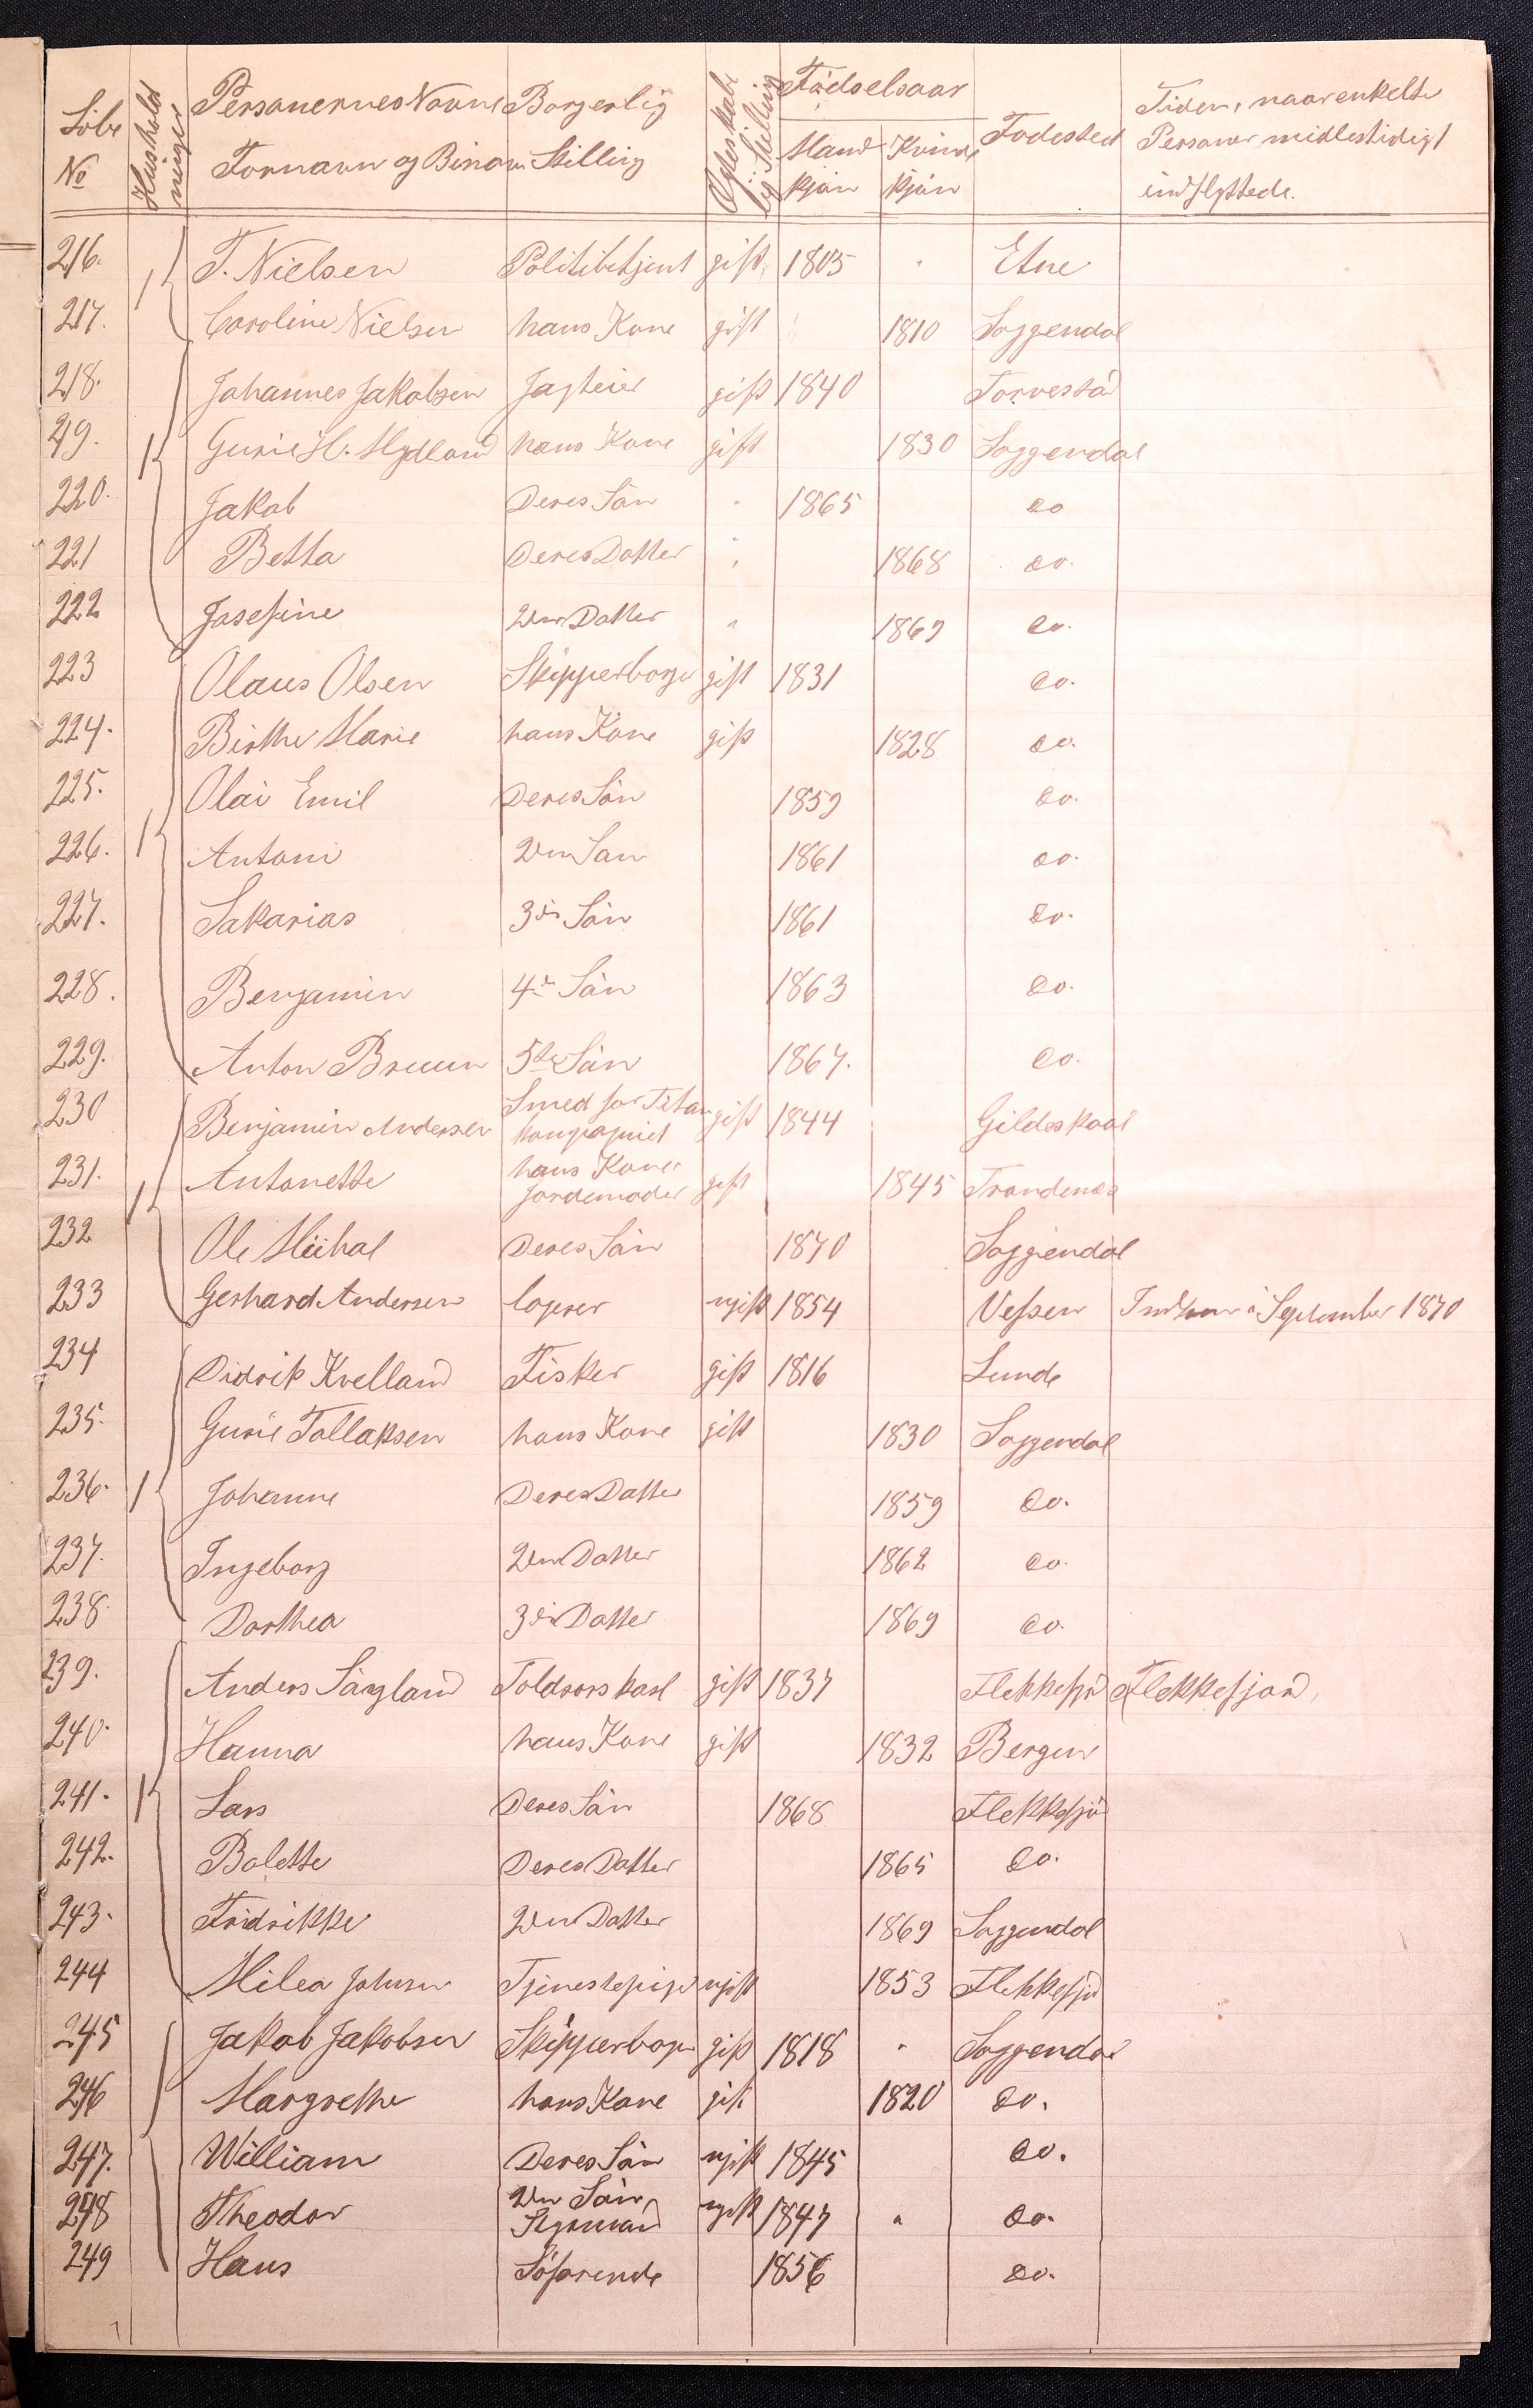 Löbe No Husholdninger Personernes Navne Fornavn og Binavn Borgerlig Stilling Egteskabelig Stilling Födselsaar Mandkjön Kvindekjön Fodested Tiden, naar enkelte Personer midlestidigt indflyttede.
216. 1 T. Nielsen Politibetjent gift 1805 " Etne
217. Caroline Nielsen hans Kone gift 1810 Soggendal
218. Johannes Jakobsen Jagteier gift 1840 Torvestad
219. 1 Gurie H. Mydland hans Kone gift 1830 Soggendal
220. Jakob Deres Sön " 1865 do
221 Betta Deres Datter " 1868 do.
222 Josefine 2den Datter " 1869 do.
223 Olaus Olsen Skipperborger gift 1831 do.
224. Birthe Marie hans Kone gift 1828 do.
225. Olai Emil Deres Sön 1859 do.
226. 1 Antoni 2den Sön 1861 do.
227. Sakarias 3die Sön 1861 do.
228. Benjamin 4de Sön 1863 do.
229. Anton Bruun 5te Sön 1867. do.
230 Benjamin Andersen Smed for Titan kompagniet gift 1844 Gildeskaal
231. 1 Antonette hans Kone Jordemoder gift 1845 Trondenes
232 Ole Mikal Deres Sön 1870 Soggendal
233 Gerhard Andersen logerer ugift 1854 Vefsen Indkom i September 1870
234 Didrik Kvelland Fisker gift 1816 Lunde
235. Gurie Tollaksen hans Kone gift 1830 Soggendal
236. 1 Johanne Deres Datter 1859 do.
237. Ingeborg 2den Datter 1862 do.
238. Dorthea 3die Datter 1869 do.
239. Anders Sörgland Toldrorskarl gift 1837 Flekkefjord (Flekkefjord,
240. Hanna hans Kone gift 1832 Bergen
241. 1 Lars Deres Sön 1868 Flekkefjo
242. Bolette Deres Datter 1865 do.
243. Fridrikke 2den Datter 1869 Soggendal
244 Milea Johnsen Tjenestepige ugift 1853 Flekkefjo
245 Jakob Jakobsen Skipperborger gift 1818 " Soggendal
246 Margrethe hans Kone gift 1820 do.
247. William Deres Sön ugift 1845 do.
248 Theodor 2den Sön, Styrmand ugift 1847 " do.
249 Hans Söfarende 1856 do.